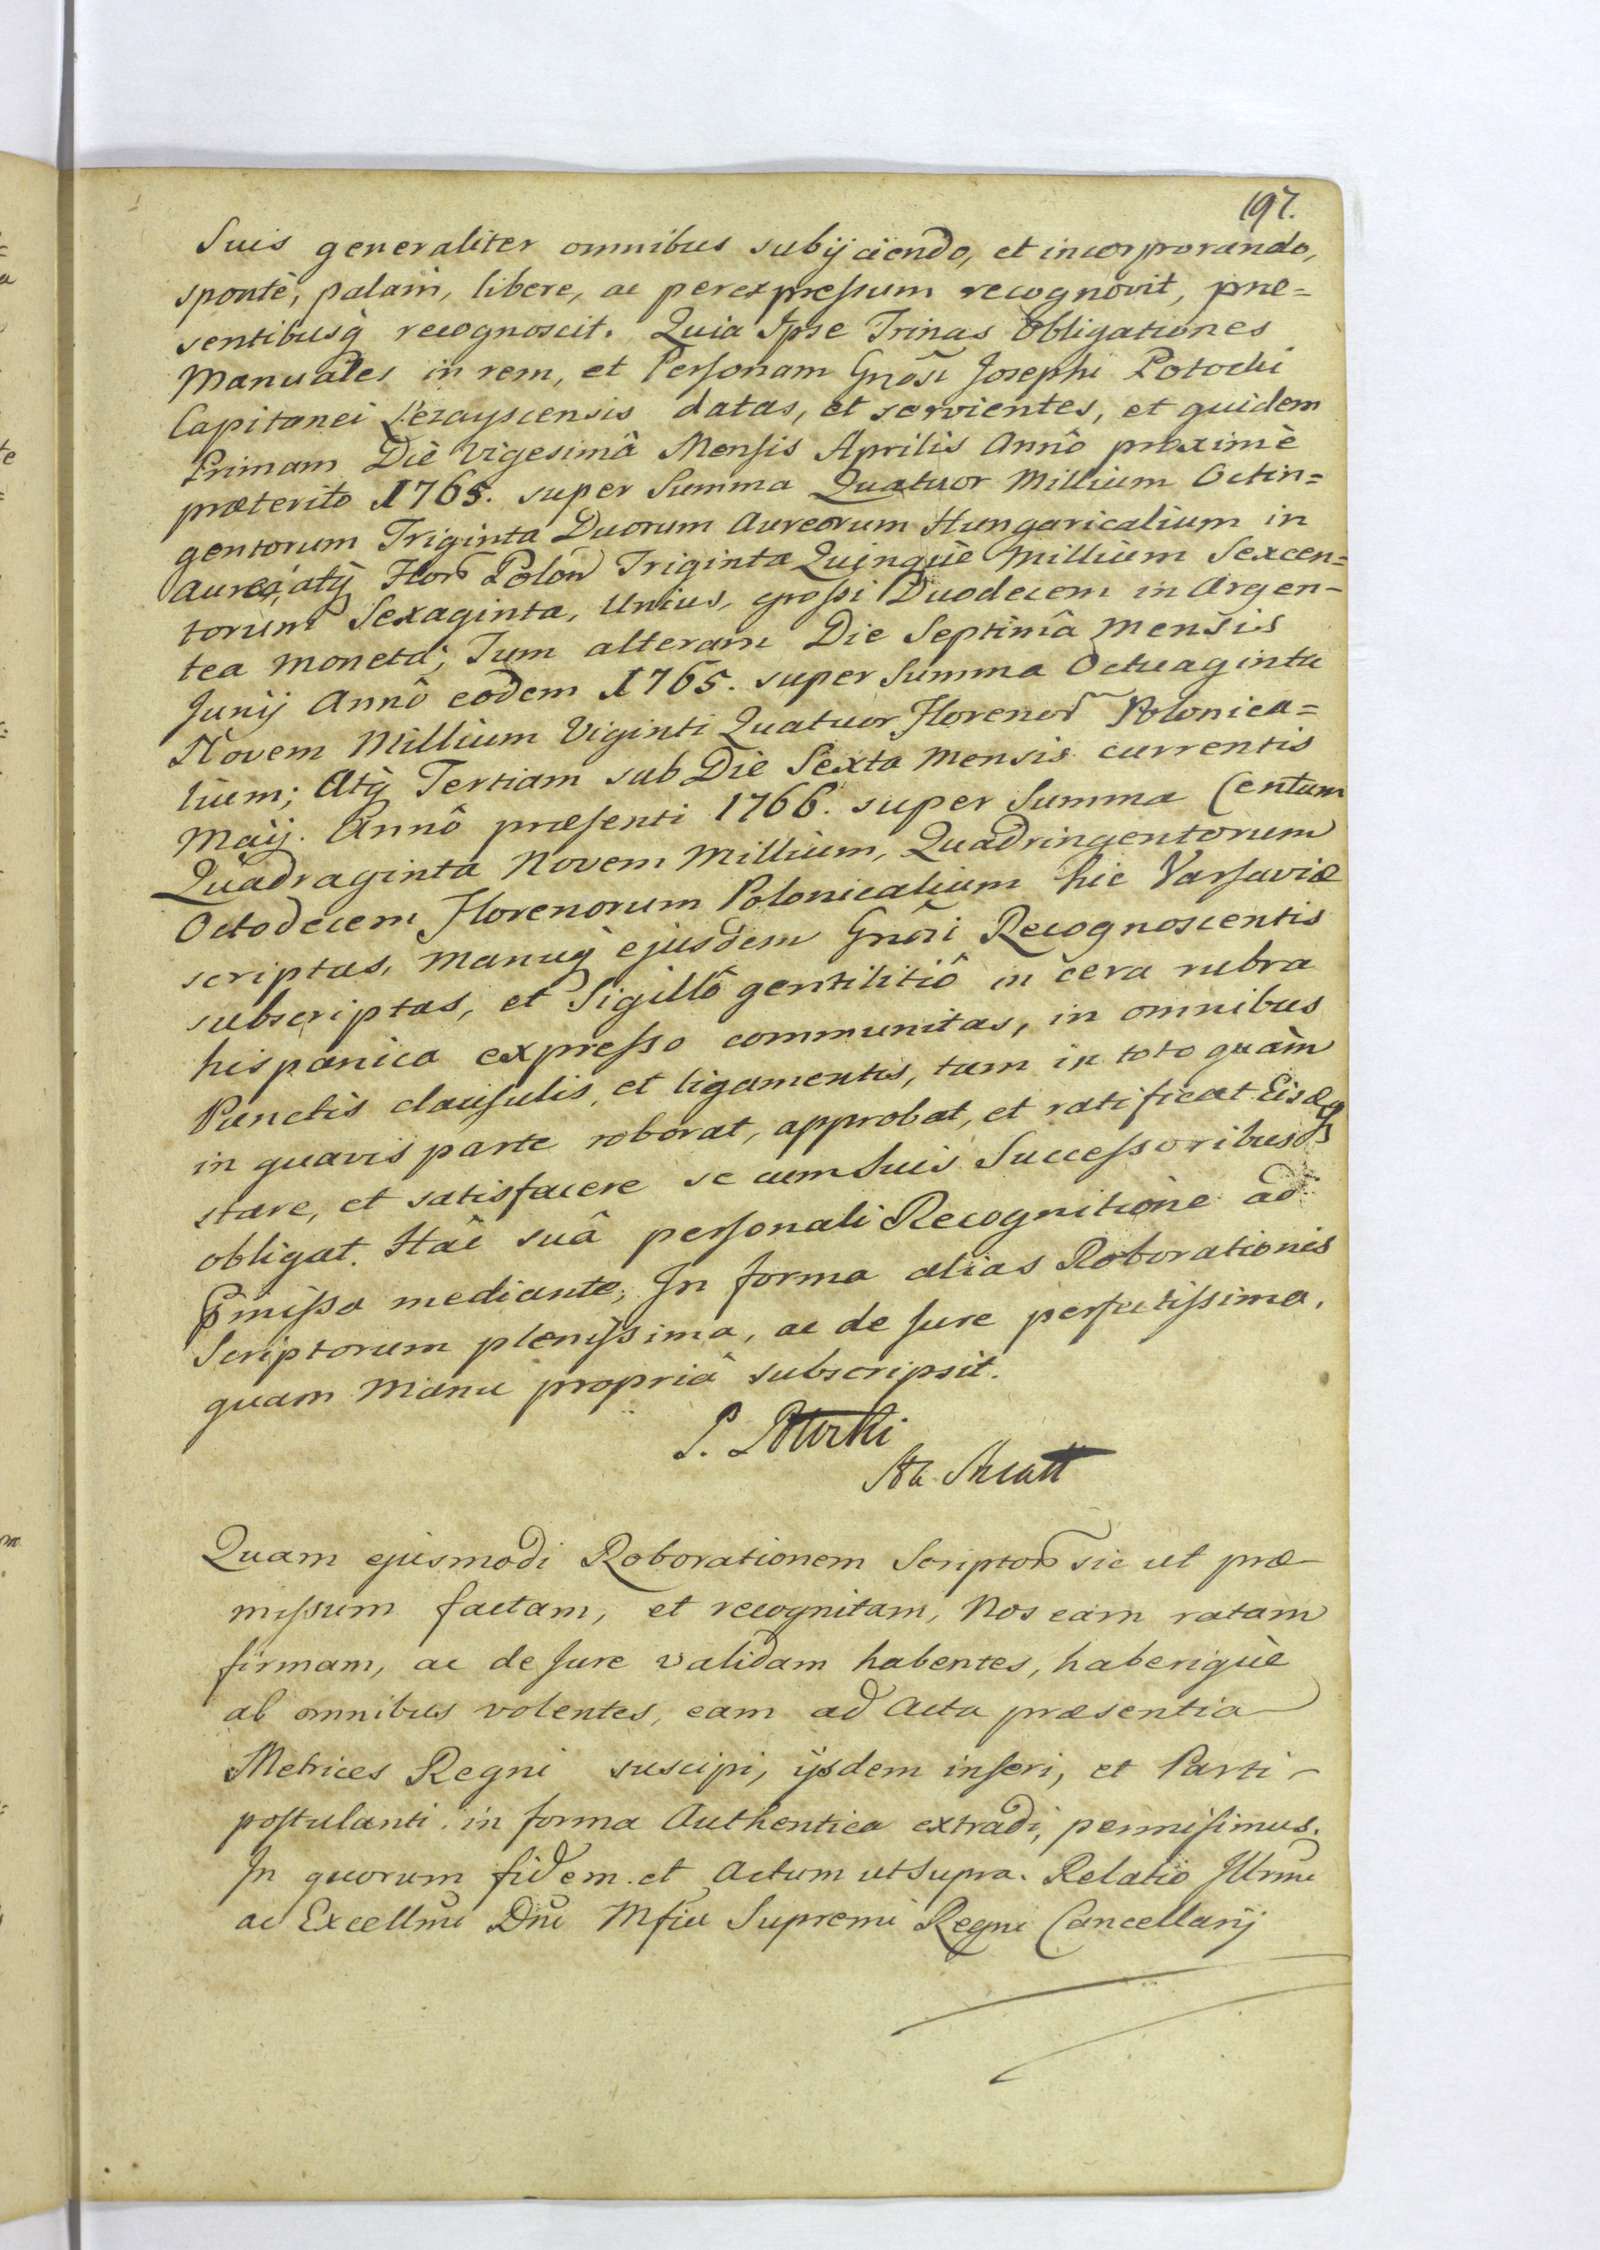 197.
Suis generaliter omnibus subijciendo, et incorporando,
spontè, palam, libere, ac perexpressum recognovit, præ=
sentibusq̀ recognoscit. Quia Ipse Trinas Obligationes
Manuales in rem, et Personam Gnosi Josephi Potocki
Capitanei Lezayscensis datas, et servientes, et quidem
Primam Diè Vigesimâ Mensis Aprilis Annô proximè
præterito 1765. super Summa Quatuor Millium Octin=
gentorum Triginta Duorum Aureorum Hungaricalium in
Aureo, atq̀ Flor Polon Triginta Quinquè Millium Sexcen=
torum Sexaginta, Unius, grossi Duodecem in Argen-
tea Moneta; Tum alteram Die Septimâ Mensis
Junij Annô eodem 1765. super Summa Octuaginta
Novem Millium Viginti Quatuor Florenor Polonica=
lium; Atq̀ Tertiam sub Die Sexta Mensis currentis
Maij. Annô præsenti 1766. super Summa Centum
Quadraginta Novem Millium, Quadringentorum
Octodecem Florenorum Polonicalium hic Varsaviæ
scriptas, Manuq̀ ejusdem Gnosi Recognoscentis
subscriptas, et Sigillô gentilitiô in cera rubra
hispanica expresso communitas, in omnibus
Punctis clausulis, et ligamentis, tam in toto quàm
in quavis parte roborat, approbat, et ratificat Eisq̀
stare, et satisfacere se cum Suis Successoribus
obligat. Hâc suâ personali Recognitione ad
Præmissa mediante; In forma alias Roborationis
Scriptorum plenissima, ac de Jure perfectissima,
quam Manu propriâ subscripsit.
P. Potocki
Quam ejusmodi Roborationem Scriptor sic ut præ-
missum factam, et recognitam, Nos eam ratam
firmam, ac de Jure validam habentes, haberiquè
ab omnibus volentes, eam ad Acta præsentia
Metrices Regni suscipi, ijsdem inseri, et Parti-
postulanti in forma Authentica extradi, permisimus.
In quorum fidem et Actum ut Supra. Relatio Illrmi
ac Excellmi Dni Mfici Supremi Regni Cancellarij